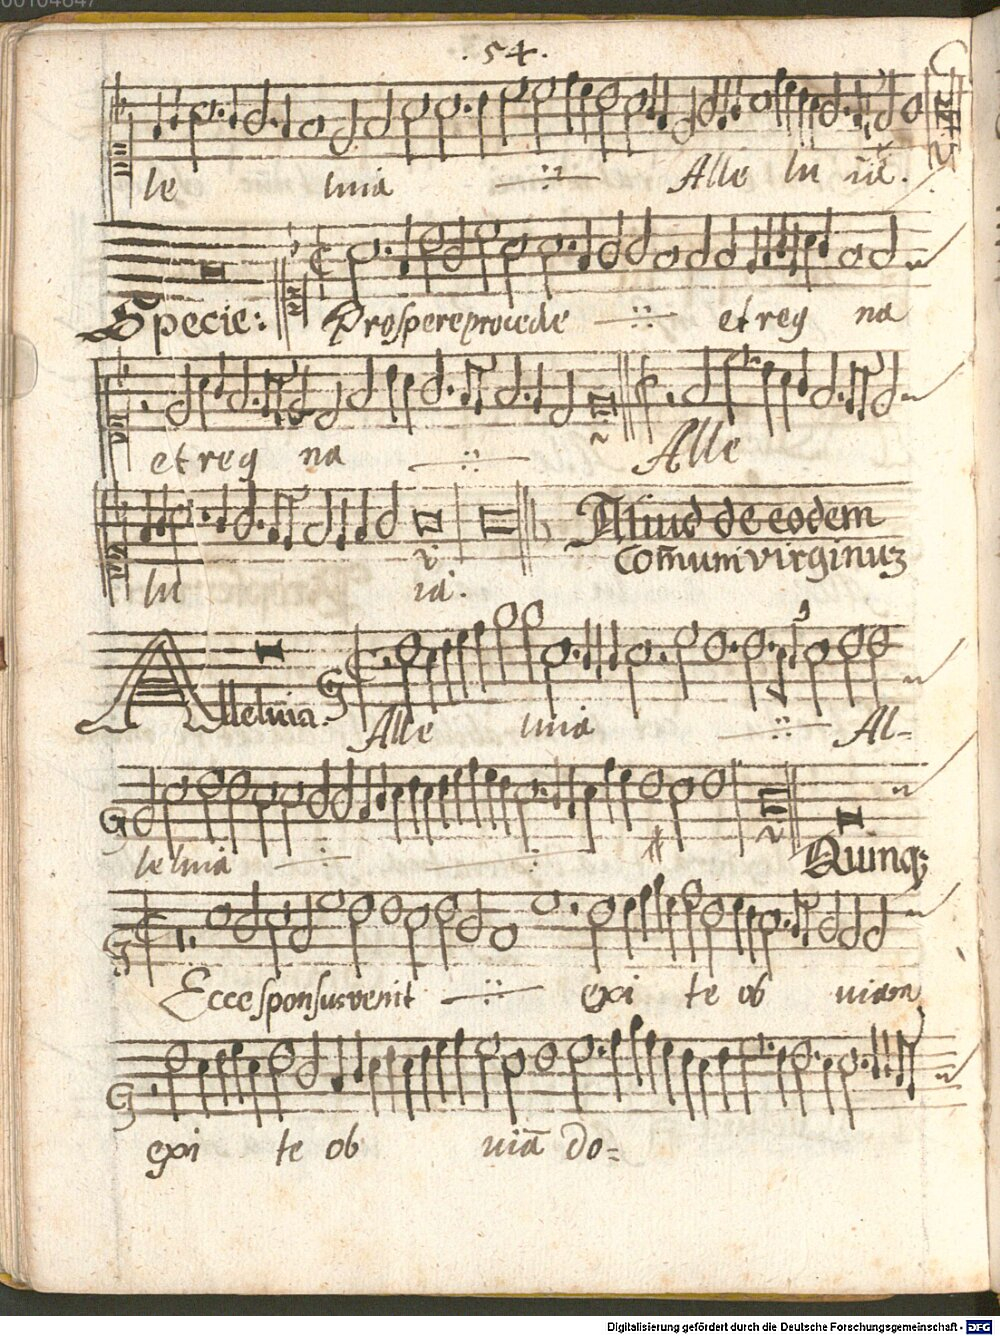 .54.
le luia Alle lu ia.
Specie: Prospere procede et reg na
et reg na Alle
lu ia.
Aliud de eodem
Com̄um virginuʒ
Alleluia. Alle luia Al-
leluia Quinqʒ
Ecce sponsus venit exi te ob viam
exi te ob viā do=
Digitalisierung gefördert durch die Deutsche Forschungsgemeinschaft - DFG